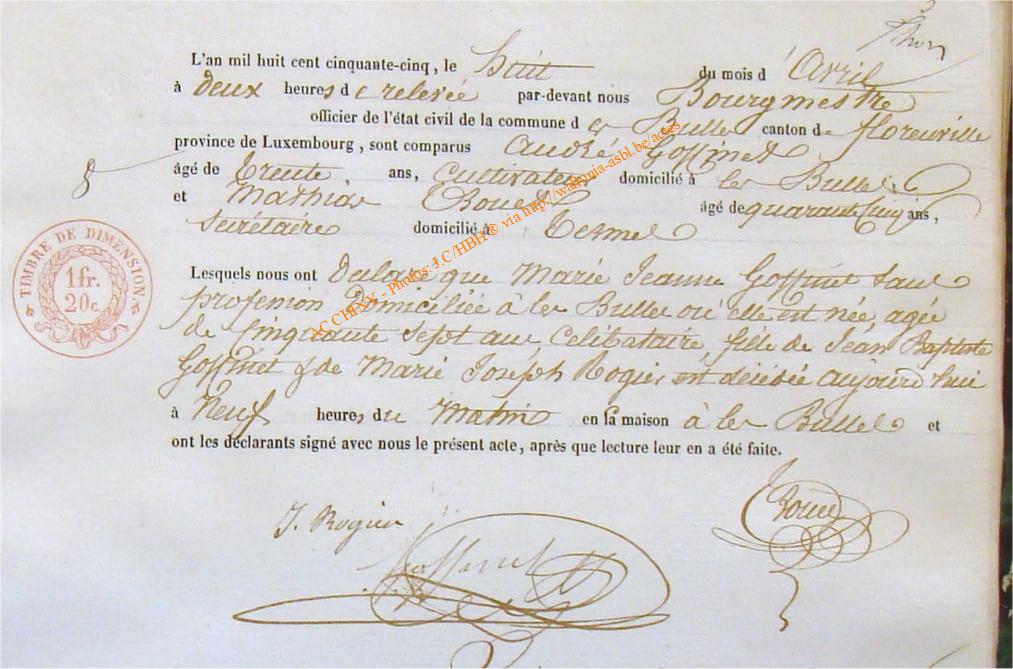 L'an mil huit cent cinquante-cinq, le huit du mois d'Avril
à deux heures de relevée par-devant nous Bourgmestre
officier de l'état civil de la commune des Bulles canton de florenville
province de Luxembourg, sont comparus André Goffinet
âgé de trente ans, Cultivateur domicilié à les Bulles
et Mathias Boué âgé de quarante cinq ans,
Secrétaire domicilié à Termes
Lesquels nous ont Declaré que Marie Jeanne Goffinet sans
profession Domiciliée à les Bulles où elle est née, agée
de Cinquante Sept ans Celibataire, fille de Jean Baptiste
Goffinet & de Marie Joseph Rogier est décédée aujourd'hui
à Neuf heures du Matin en la maison à les Bulles et
ont les déclarants signé avec nous le présent acte, après que lecture leur en a été faite.
8
TIMBRE DE DIMENSION.
1 fr.
20 c.
J. Rogier
Goffinet
AC CHINY - Photos: J.C/HBH ® via http://wallonia-asbl.be/actes